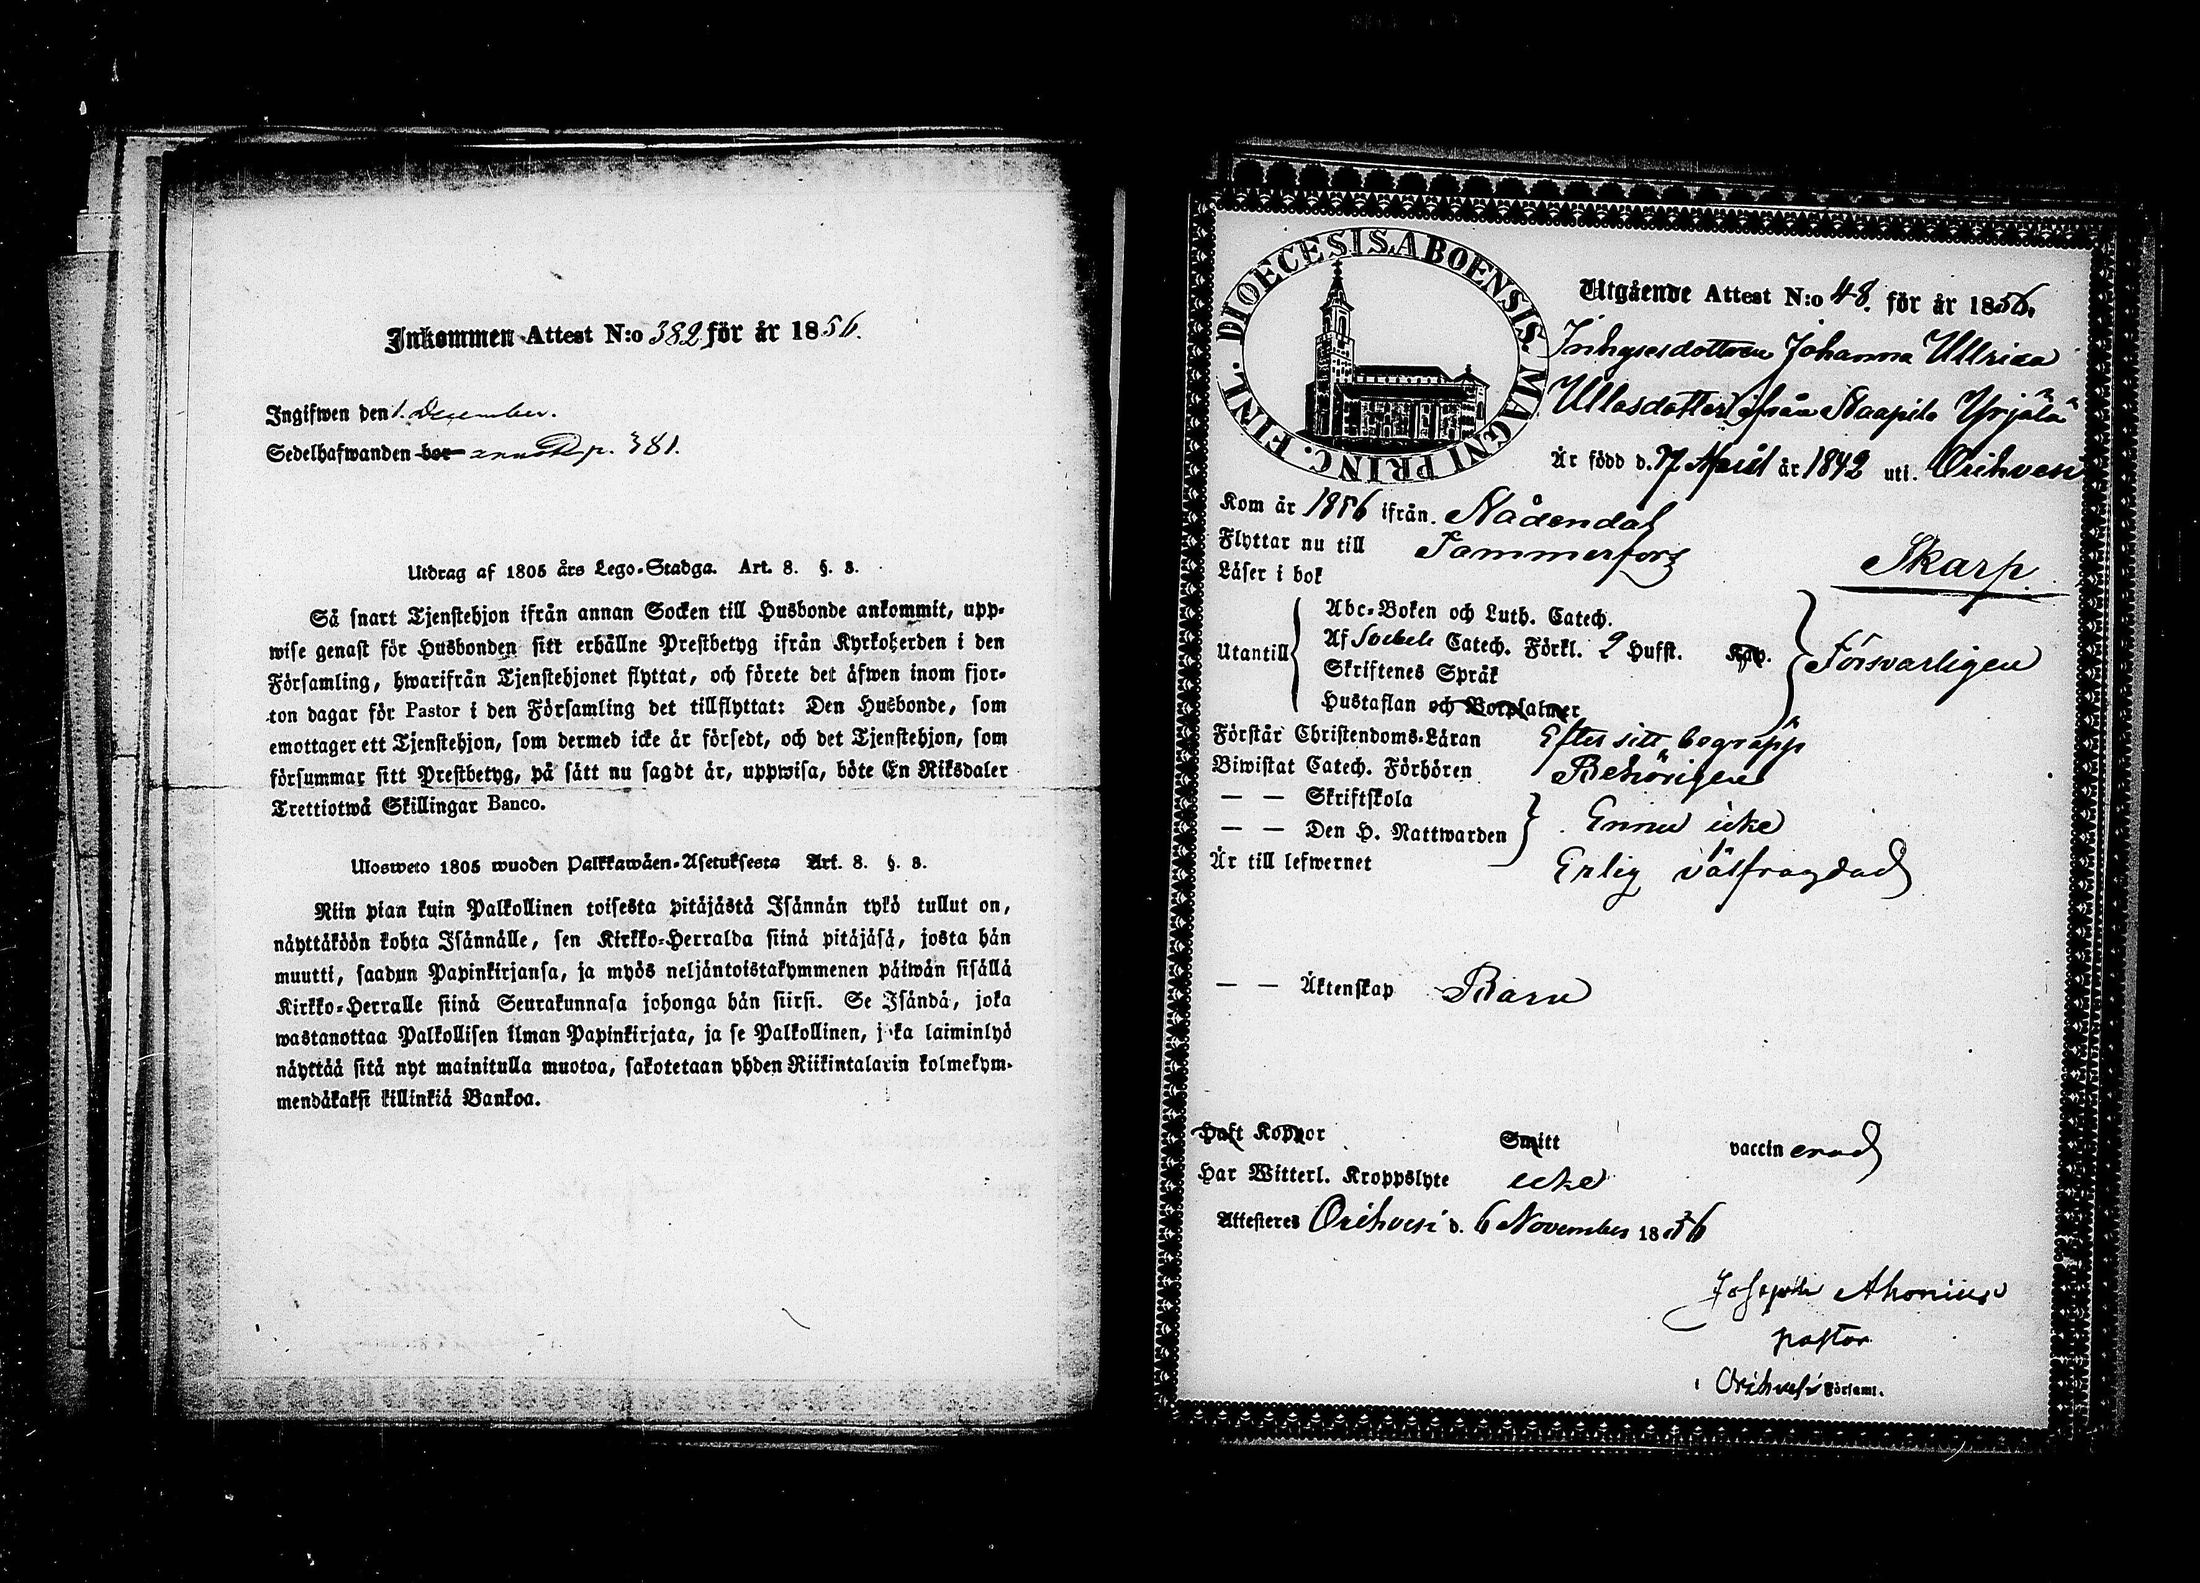 Inkommen Attest N:o 382 för år 1856.
Ingifwen den 1. December.
Sedelhafwanden bor p. 381.
Utdrag af 1805 års Lego-Stadga. Art. 8. §. 8.
Så snart Tjenstehjon ifrån annan Socken till Husbonde ankommit, upp-
wise genast för Husbonden sitt erhållne Prestbetyg ifrån Kyrkoherden i den
Församling, hwarifrån Tjenstehjonet flyttat, och förete det äfwen inom fjor-
ton dagar för Pastor i den Församling det tillflyttat: Den Husbonde, som
emottager ett Tjenstehjon, som dermed icke är försedt, och det Tjenstehjon, som
försummar sitt Prestbetyg, på sätt nu sagdt är, uppwisa, böte En Riksdaler
Trettiotwå Skillingar Banco.
Ulosweto 1805 wuoden Palkkawäen-Asetuksesta Art. 8. §. 8.
Niin pian kuin Palkollinen toisesta pitäjästä Isännän tykö tullut on,
näyttäköön kohta Isännälle, sen Kirkko-Herralda siinä pitäjäsä, josta hän
muutti, saadun Papinkirjansa, ja myös neljäntoistakymmenen päiwän sisällä
Kirkko-Herralle siinä Seurakunnasa johonga hän siirsi. Se Isändä, joka
wastanottaa Palkollisen ilman Papinkirjata, ja se Palkollinen, joka laiminlyö
näyttää sitä nyt mainitulla muotoa, sakotetaan yhden Riikintalarin kolmekym-
mendäkaksi killinkiä Bankoa.
FINL. DIOECESIS ABOENSIS. MAGNI PRINC.
Utgående Attest N:o 48. för år 1856.
Inhysesdottren Johanna Ullrica
Ullasdotter ifrån Yrjälä
Är född d. 7 April år 1842 uti. Orihvesi
Kom år 1856 ifrån. Nådendal
Flyttar nu till Tammerfors
Skarp.
Läser i bok
Abc-Boken och Luth. Catech.
Utantill Af Catech. Förkl. 2 Hufst. Kap. Försvarligen
Skriftenes Språk
Hustaflan och Botpsalmer
Förstår Christendoms-Läran Efter sitt begrepp
Biwistat Catech. Förhören Behörigen
— — Skriftskola
— — Den H. Nattwarden Ännu icke
Är till lefwernet Ärlig välfrägdad
— — Äktenskap Barn
Haft Koppor Smitt vaccinerad
Har Witterl. Kroppslyte icke
Attesteres Orihvesi d. 6 November 1856
Joseph Ahonius
pastor
i Orihvesi Församl.